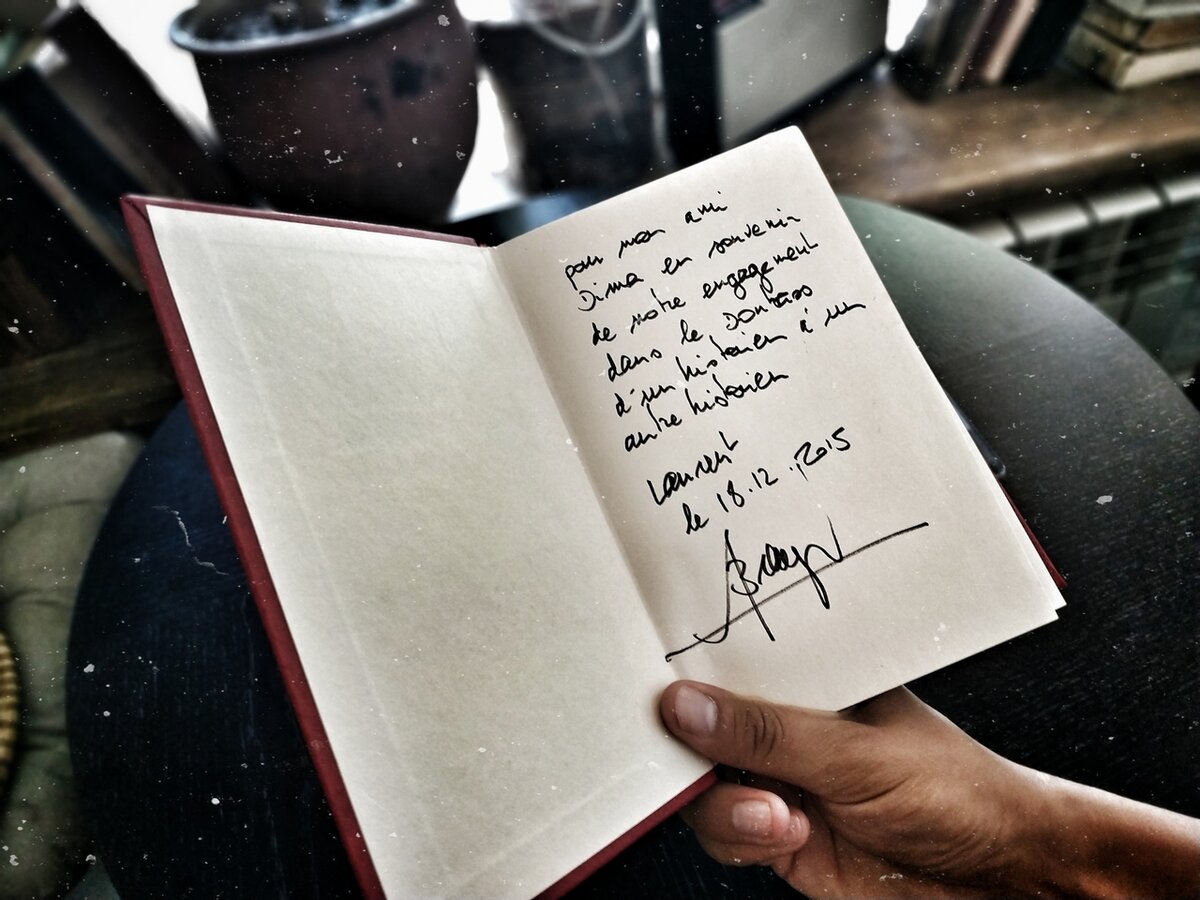 pour mon ami
Dima en souvenir
de notre engagement
dans le Donbass
d'un historien à un
autre historien
Laurent
le 18.12.2015